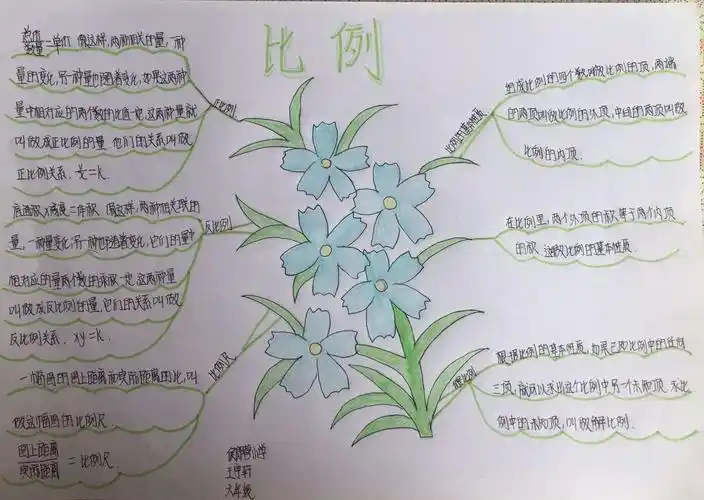 比例
总价/数量=单价 像这样,两种相关联的量,一种
量的变化,另一种量也随着变化,如果这两种
量中相对应的两个数的比值一定,这两种量就
叫做成正比例的量 他们的关系叫做
正比例关系. y/x=k.
正比例
底面积×高度=体积 像这样,两种相关联的
量,一种量变化,另一种也随着变化,它们的量中
相对应的量两个数的乘积一定,这两种量
叫做成反比例的量,它们的关系叫做
反比例关系. xy=k.
反比例
一幅图的图上距离和实际距离的比,叫
做这个幅图的比例尺.
图上距离/实际距离=比例尺.
比例尺
组成比例的四个数叫做比例的项,两端
的两项叫做比例的外项,中间的两项叫做
比例的内项.
比例的基本性质
在比例里,两个外项的积等于两个内项
的积.这叫做比例的基本性质.
根据比例的基本性质,如果已知比例中的任何
三项,就可以求出这个比例中另一个未知项.求比
例中的未知项,叫做解比例.
解比例
小学
六年级